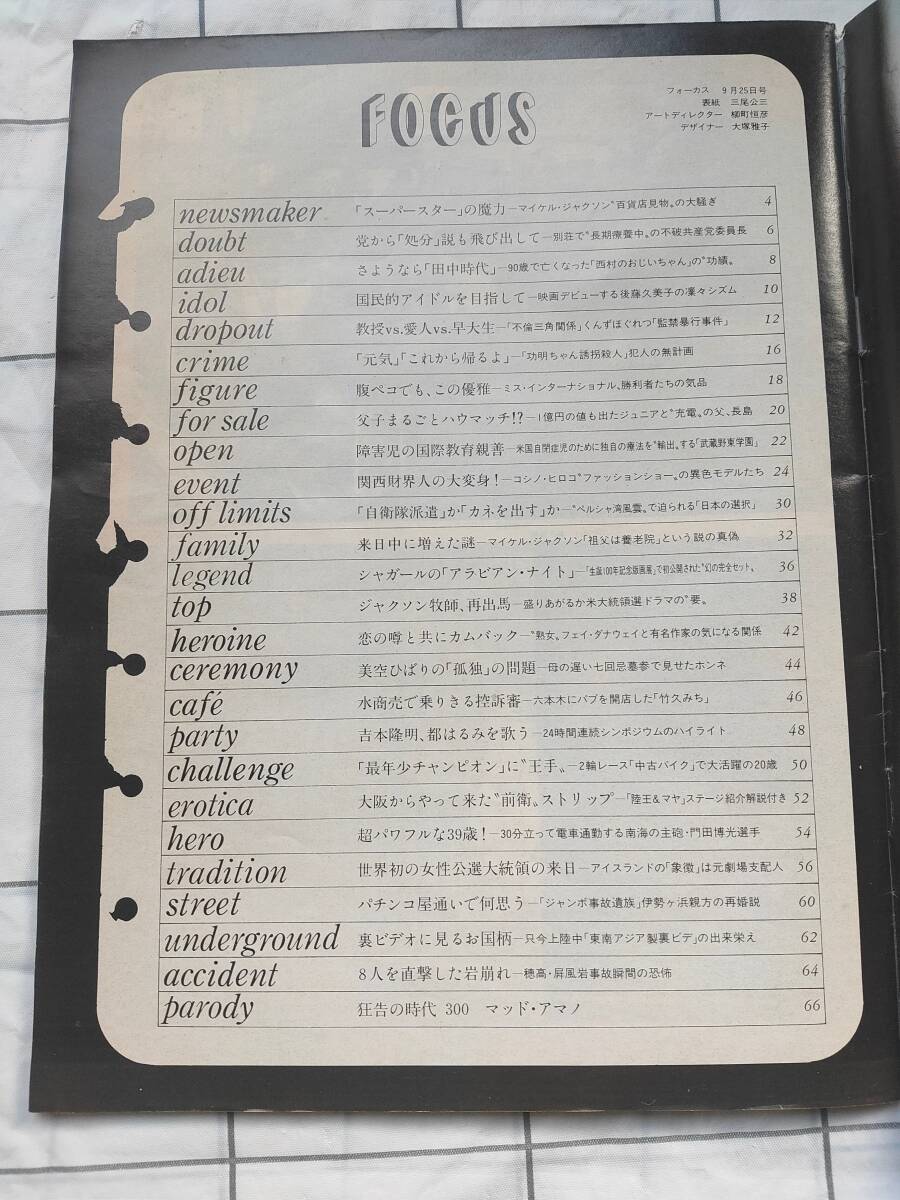 FOCUS
フォーカス 9月25日号
表紙 三尾公三
アートディレクター 柳町恒彦
デザイナー 大塚雅子
newsmaker 「スーパースター」の魔力―マイケル・ジャクソン〝百貨店見物〟の大騒ぎ 4
doubt 党から「処分」説も飛び出して―別荘で〝長期療養中〟の不破共産党委員長 6
adieu さようなら「田中時代」―90歳で亡くなった「西村のおじいちゃん」の〝功績〟 8
idol 国民的アイドルを目指して―映画デビューする後藤久美子の凜々シズム 10
dropout 教授vs.愛人vs.早大生―「不倫三角関係」くんずほぐれつ「監禁暴行事件」 12
crime 「元気」「これから帰るよ」―「功明ちゃん誘拐殺人」犯人の無計画 16
figure 腹ペコでも、この優雅―ミス・インターナショナル、勝利者たちの気品 18
for sale 父子まるごとハウマッチ!?―1億円の値も出たジュニアと〝充電〟の父、長島 20
open 障害児の国際教育親善―米国自閉症児のために独自の療法を〝輸出〟する「武蔵野東学園」 22
event 関西財界人の大変身!―コシノ・ヒロコ〝ファッションショー〟の異色モデルたち 24
off limits 「自衛隊派遣」か「カネを出す」か―〝ペルシャ湾風雲〟で迫られる「日本の選択」 30
family 来日中に増えた謎―マイケル・ジャクソン「祖父は養老院」という説の真偽 32
legend シャガールの「アラビアン・ナイト」―「生誕100年記念版画展」で初公開された〝幻の完全セット〟 36
top ジャクソン牧師、再出馬―盛りあがるか米大統領選ドラマの〝要〟 38
heroine 恋の噂と共にカムバック―〝熟女〟フェイ・ダナウェイと有名作家の気になる関係 42
ceremony 美空ひばりの「孤独」の問題―母の遅い七回忌墓参で見せたホンネ 44
café 水商売で乗りきる控訴審―六本木にパブを開店した「竹久みち」 46
party 吉本隆明、都はるみを歌う―24時間連続シンポジウムのハイライト 48
challenge 「最年少チャンピオン」に〝王手〟―2輪レース「中古バイク」で大活躍の20歳 50
erotica 大阪からやって来た〝前衛〟ストリップ―「陸王&マヤ」ステージ紹介解説付き 52
hero 超パワフルな39歳!―30分立って電車通勤する南海の主砲・門田博光選手 54
tradition 世界初の女性公選大統領の来日―アイスランドの「象徴」は元劇場支配人 56
street パチンコ屋通いで何思う―「ジャンボ事故遺族」伊勢ヶ浜親方の再婚説 60
underground 裏ビデオに見るお国柄―只今上陸中「東南アジア製裏ビデ」の出来栄え 62
accident 8人を直撃した岩崩れ―穂高・屏風岩事故瞬間の恐怖 64
parody 狂告の時代 300 マッド・アマノ 66